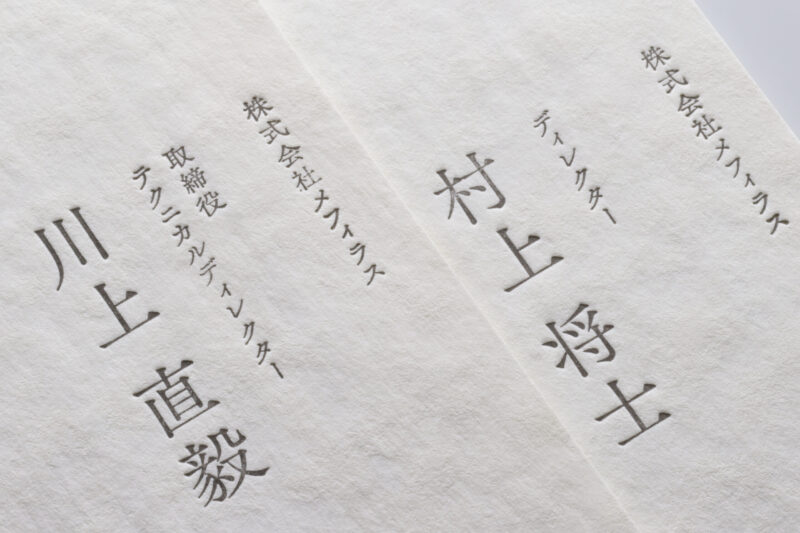 株式会社メフィラス
ディレクター
村上 将士
株式会社メフィラス
取締役
テクニカルディレクター
川上 直毅